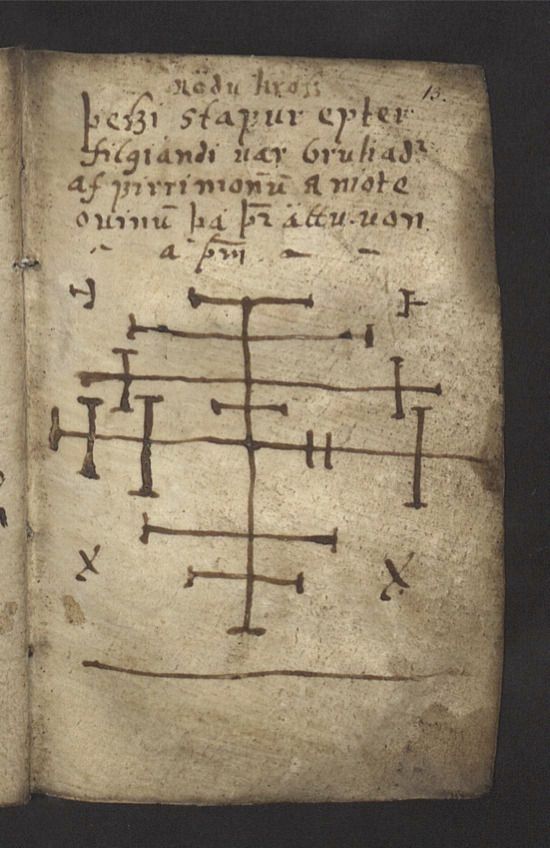 Rödu kross
13.
þessi stapur epter
filgiandi var brukadr
af pirri monnū a mote
ovinū þa þr attu von
a þm